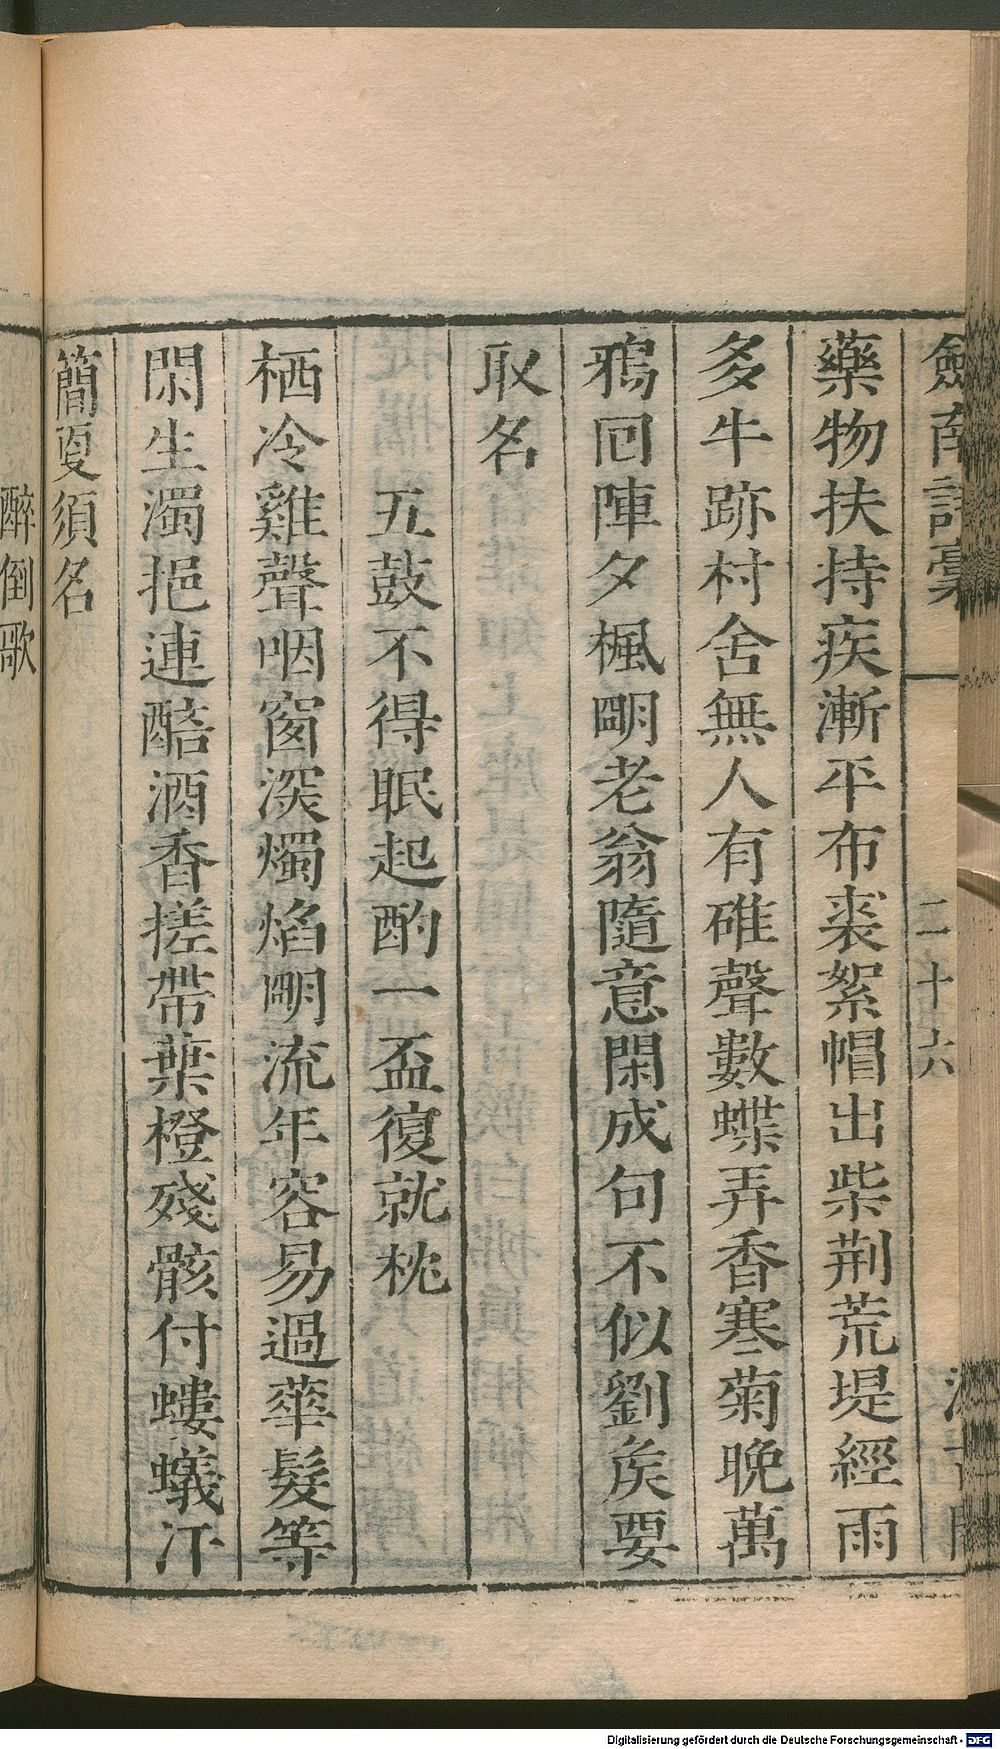 劍南詩稾
二十六
藥物扶持疾漸平布裘絮帽出柴荆荒堤經雨
多牛跡村舍無人有碓聲數蝶弄香寒菊晚萬
鴉回陣夕楓明老翁隨意閑成句不似劉矦要
取名
五鼓不得眠起酌一盃復就枕
栖冷雞聲咽窗深燭焰明流年容易過華髮等
閑生濁挹連醅酒香搓帶葉橙殘骸付螻蟻汗
簡更須名
醉倒歌
Digitalisierung gefördert durch die Deutsche Forschungsgemeinschaft - DFG